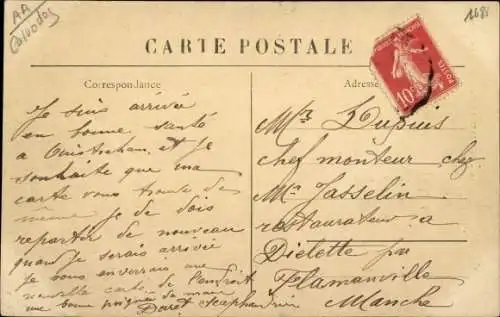 AA
Calvados
1685
CARTE POSTALE
Correspondance
Adresse
10c
POSTES
Je suis arrivée
en bonne santé
a Ouistreham et je
souhaite que ma
carte vous trouve de
meme je de dois
repartir de nouveau
quand je serais arrivée
je vous enverrais une
nouvelle carte de l'endroit
une bonne poignée de main
Mr Dupuis
chef monteur chez
Mr Jasselin
restaurateur a
Dielette par
Flamanville
Manche